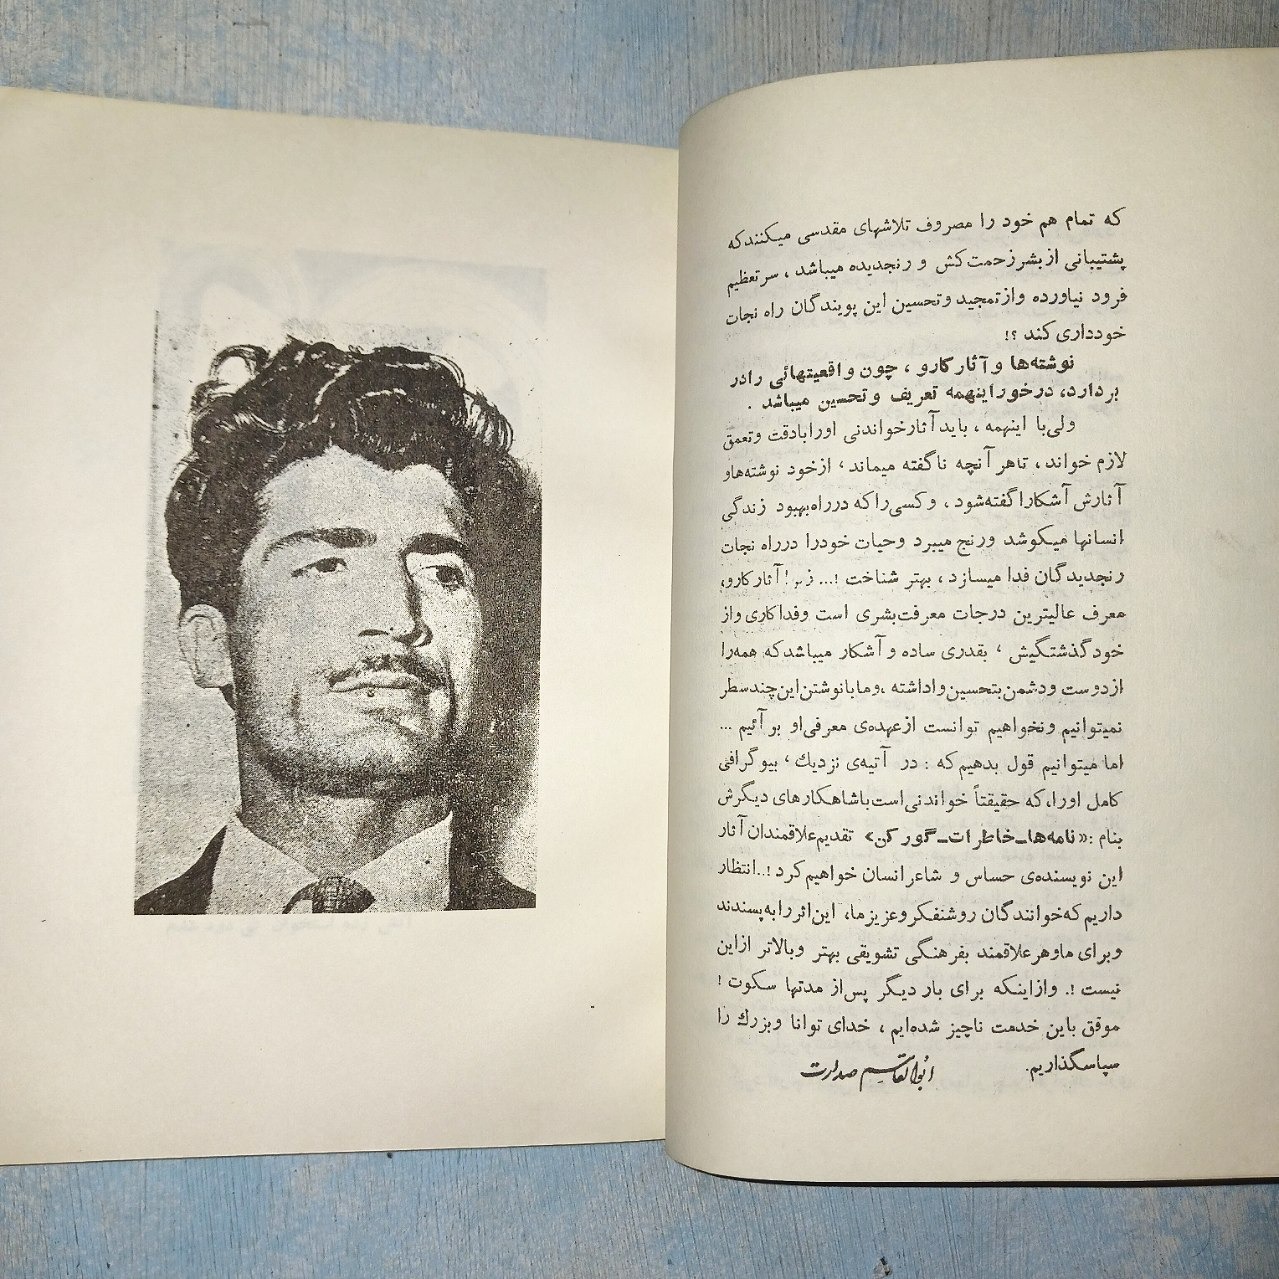 که تمام هم خود را مصروف تلاشهای مقدسی میکنندکه
پشتیبانی از بشر زحمت‌کش و رنجدیده میباشد ، سر تعظیم
فرود نیاورده و از تمجید و تحسین این پویندگان راه نجات
خودداری کند ؟!
نوشته‌ها و آثار کارو ، چون واقعیتهائی را در
بر دارد، در خور اینهمه تعریف و تحسین میباشد .
ولی با اینهمه ، باید آثار خواندنی او را با دقت و تعمق
لازم خواند ، تا هر آنچه ناگفته میماند ، از خود نوشته‌ها و
آثارش آشکارا گفته شود ، و کسی را که در راه بهبود زندگی
انسانها میکوشد و رنج میبرد و حیات خود را در راه نجات
رنجدیدگان فدا میسازد ، بهتر شناخت !... زیرا آثار کارو،
معرف عالیترین درجات معرفت بشری است و فداکاری و از
خود گذشتگیش ، بقدری ساده و آشکار میباشد که همه را
از دوست و دشمن بتحسین واداشته ، و ما با نوشتن این چند سطر
نمیتوانیم و نخواهیم توانست از عهده‌ی معرفی او بر آئیم ...
اما میتوانیم قول بدهیم که : در آتیه‌ی نزدیك ، بیوگرافی
کامل او را، که حقیقتاً خواندنی است با شاهکارهای دیگرش
بنام : «نامه‌ها_خاطرات_گورکن» تقدیم علاقمندان آثار
این نویسنده‌ی حساس و شاعر انسان خواهیم کرد !.. انتظار
داریم که خوانندگان روشنفکر و عزیز ما، این اثر را به پسندند
و برای ما و هر علاقمند بفرهنگی تشویقی بهتر و بالاتر از این
نیست !. و از اینکه برای بار دیگر پس از مدتها سکوت !
موفق باین خدمت ناچیز شده‌ایم ، خدای توانا و بزرك را
سپاسگذاریم.
ابوالقاسم صدارت